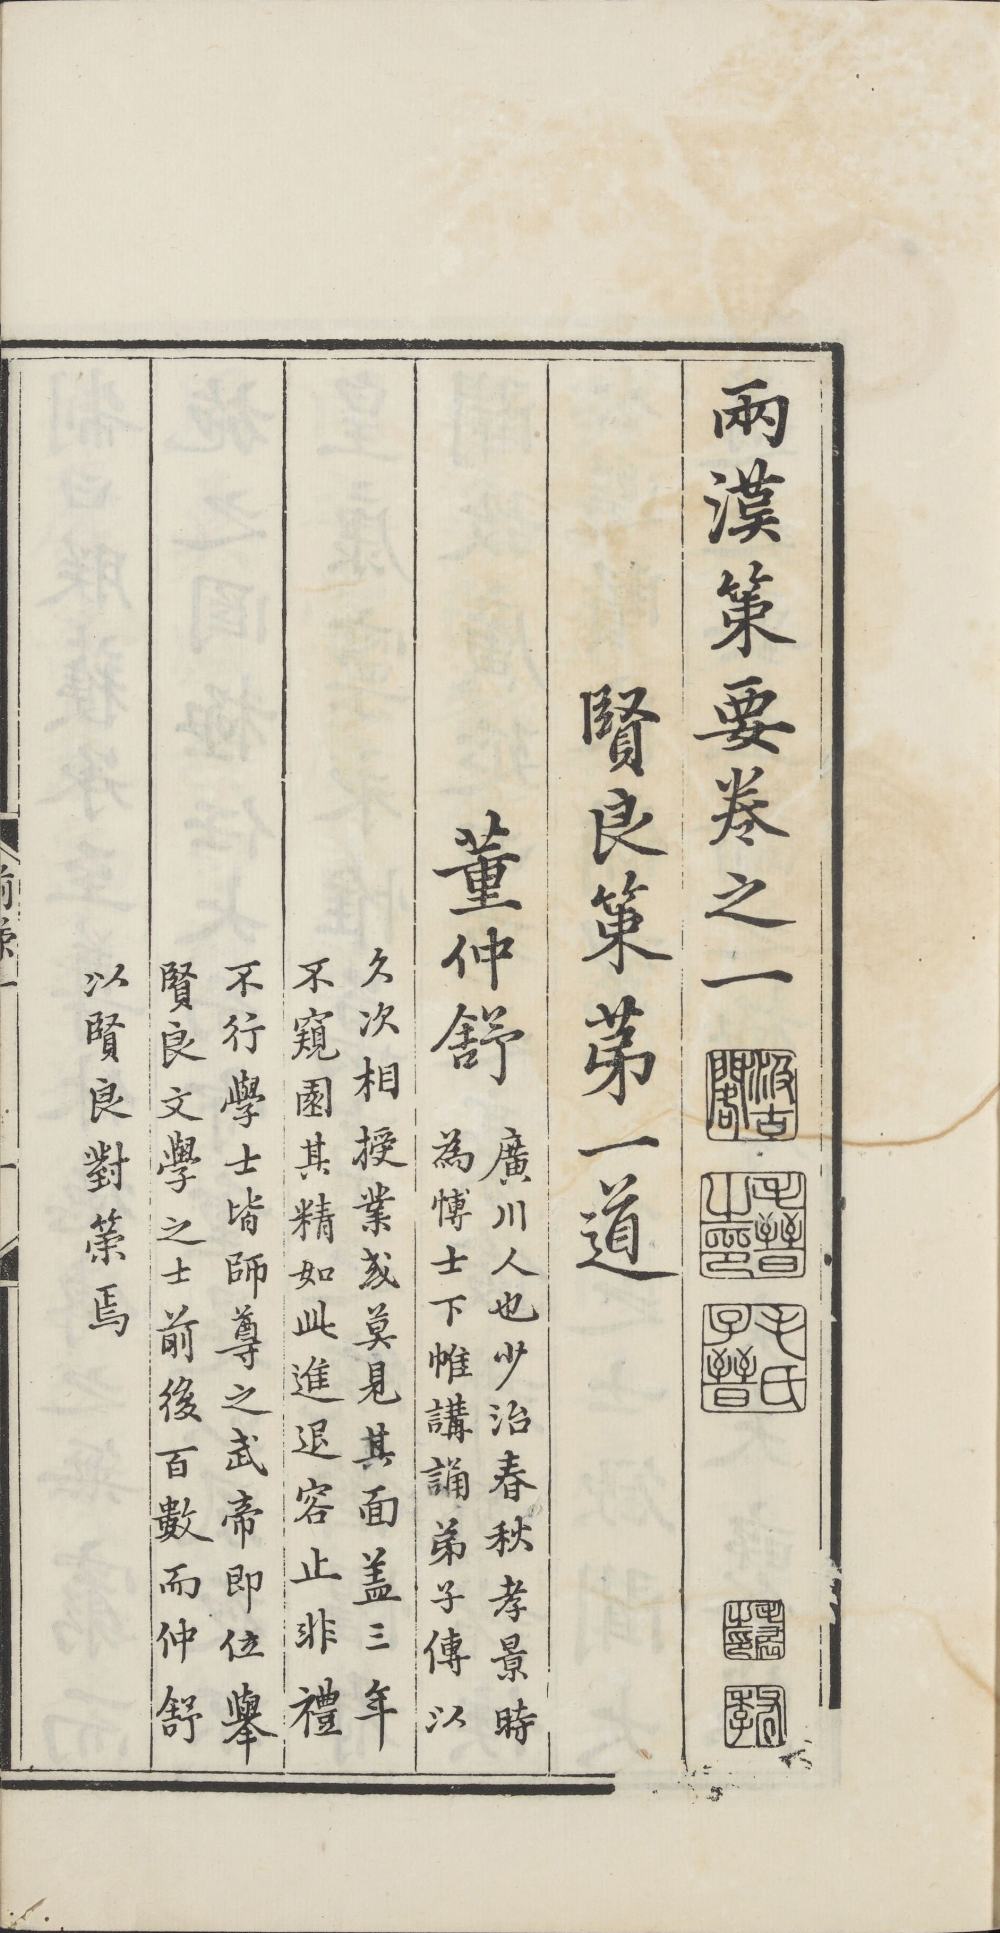 兩漢策要卷之一
汲古閣
毛晉之印
毛氏子晉
賢良策苐一道
董仲舒
廣川人也少治春秋孝景時
為愽士下帷講誦弟子傳以
久次相授業或莫見其面盖三年
不窺園其精如此進退容止非禮
不行學士皆師尊之武帝即位舉
賢良文學之士前後百數而仲舒
以賢良對策焉